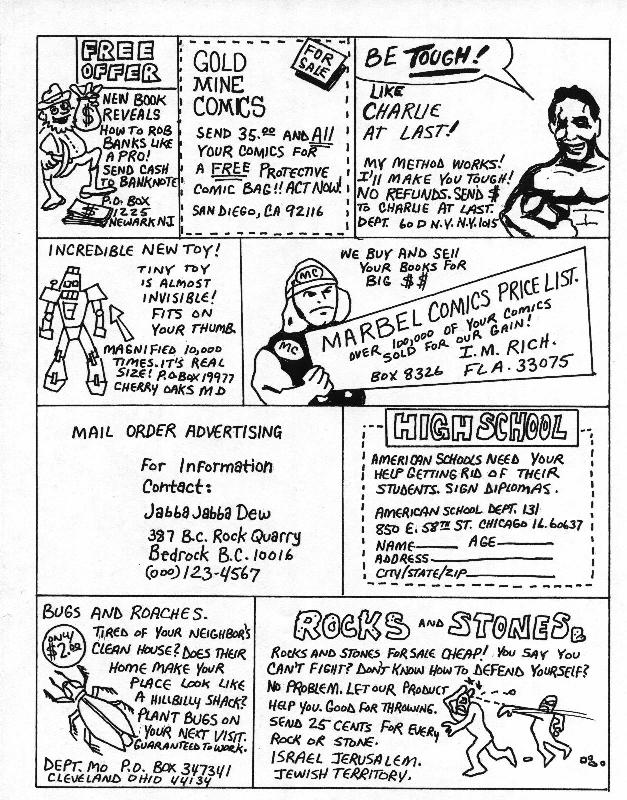 FREE
OFFER
NEW BOOK
REVEALS
HOW TO ROB
BANKS LIKE
A PRO!
SEND CASH
TO BANKNOTE
P.O. BOX
1225
NEWARK NJ
$
$
GOLD
MINE
COMICS
FOR
SALE
SEND 35.00 AND All
YOUR COMICS FOR
A FREE PROTECTIVE
COMIC BAG!! ACT NOW!
SAN DIEGO, CA 92116
BE TOUGH!
LIKE
CHARLIE
AT LAST!
MY METHOD WORKS!
I'll MAKE YOU TOUGH!
NO REFUNDS. SEND $
TO CHARLIE AT LAST.
DEPT. 60 D N.Y. N.Y. 1015
INCREDIBLE NEW TOY!
TINY TOY
IS ALMOST
INVISIBLE!
FITS ON
YOUR THUMB.
MAGNIFIED 10,000
TIMES. IT'S REAL
SIZE! P.O BOX 19977
CHERRY OAKS MD
WE BUY AND SEll
YOUR BOOKS FOR
BIG $$
MC
MC
MARBEL COMICS PRICE LIST.
OVER 100,000 OF YOUR COMICS
SOLD FOR OUR GAIN!
I.M. RICH.
BOX 8326 FLA. 33075
MAIL ORDER ADVERTISING
For Information
Contact:
Jabba Jabba Dew
387 B.C. Rock Quarry
Bedrock B.C. 10016
(000) 123-4567
HIGH SCHOOL
AMERICAN SCHOOLS NEED YOUR
HELP GETTING RID OF THEIR
STUDENTS. SIGN DIPLOMAS.
AMERICAN SCHOOL DEPT. 131
850 E. 58TH ST. CHICAGO IL. 60637
NAME AGE
ADDRESS
CITY/STATE/ZIP
BUGS AND ROACHES.
ONLY
$2.00
TIRED OF YOUR NEIGHBOR'S
CLEAN HOUSE? DOES THEIR
HOME MAKE YOUR
PLACE LOOK LIKE
A HILLBILLY SHACK?
PLANT BUGS ON
YOUR NEXT VISIT.
GUARANTEED TO WORK.
DEPT. MO P.O. BOX 347341
CLEVELAND OHIO 44134
ROCKS AND STONES.
ROCKS AND STONES FOR SALE CHEAP! YOU SAY YOU
CAN'T FIGHT? DON'T KNOW HOW TO DEFEND YOURSELF?
NO PROBLEM. LET OUR PRODUCT
HELP YOU. GOOD FOR THROWING.
SEND 25 CENTS FOR EVERY
ROCK OR STONE.
ISRAEL JERUSALEM.
JEWISH TERRITORY.